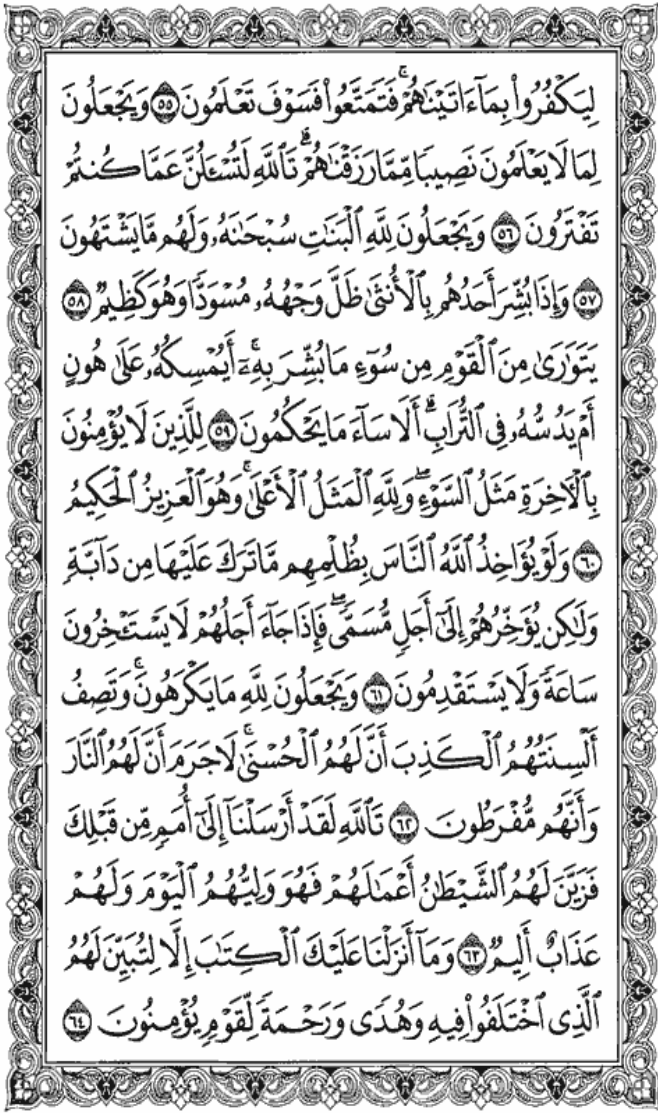 لِيَكْفُرُوا۟ بِمَآ ءَاتَيْنَٰهُمْ ۚ فَتَمَتَّعُوا۟ فَسَوْفَ تَعْلَمُونَ ٥٥ وَيَجْعَلُونَ
لِمَا لَا يَعْلَمُونَ نَصِيبًا مِّمَّا رَزَقْنَٰهُمْ ۗ تَٱللَّهِ لَتُسْـَٔلُنَّ عَمَّا كُنتُمْ
تَفْتَرُونَ ٥٦ وَيَجْعَلُونَ لِلَّهِ ٱلْبَنَٰتِ سُبْحَٰنَهُۥ وَلَهُم مَّا يَشْتَهُونَ
٥٧ وَإِذَا بُشِّرَ أَحَدُهُم بِٱلْأُنثَىٰ ظَلَّ وَجْهُهُۥ مُسْوَدًّا وَهُوَ كَظِيمٌ ٥٨
يَتَوَٰرَىٰ مِنَ ٱلْقَوْمِ مِن سُوٓءِ مَا بُشِّرَ بِهِۦٓ ۚ أَيُمْسِكُهُۥ عَلَىٰ هُونٍ
أَمْ يَدُسُّهُۥ فِى ٱلتُّرَابِ ۗ أَلَا سَآءَ مَا يَحْكُمُونَ ٥٩ لِلَّذِينَ لَا يُؤْمِنُونَ
بِٱلْـَٔاخِرَةِ مَثَلُ ٱلسَّوْءِ ۖ وَلِلَّهِ ٱلْمَثَلُ ٱلْأَعْلَىٰ ۚ وَهُوَ ٱلْعَزِيزُ ٱلْحَكِيمُ
٦٠ وَلَوْ يُؤَاخِذُ ٱللَّهُ ٱلنَّاسَ بِظُلْمِهِم مَّا تَرَكَ عَلَيْهَا مِن دَآبَّةٍ
وَلَٰكِن يُؤَخِّرُهُمْ إِلَىٰٓ أَجَلٍ مُّسَمًّى ۖ فَإِذَا جَآءَ أَجَلُهُمْ لَا يَسْتَـْٔخِرُونَ
سَاعَةً ۖ وَلَا يَسْتَقْدِمُونَ ٦١ وَيَجْعَلُونَ لِلَّهِ مَا يَكْرَهُونَ ۚ وَتَصِفُ
أَلْسِنَتُهُمُ ٱلْكَذِبَ أَنَّ لَهُمُ ٱلْحُسْنَىٰ ۖ لَا جَرَمَ أَنَّ لَهُمُ ٱلنَّارَ
وَأَنَّهُم مُّفْرَطُونَ ٦٢ تَٱللَّهِ لَقَدْ أَرْسَلْنَآ إِلَىٰٓ أُمَمٍ مِّن قَبْلِكَ
فَزَيَّنَ لَهُمُ ٱلشَّيْطَٰنُ أَعْمَٰلَهُمْ فَهُوَ وَلِيُّهُمُ ٱلْيَوْمَ وَلَهُمْ
عَذَابٌ أَلِيمٌ ٦٣ وَمَآ أَنزَلْنَا عَلَيْكَ ٱلْكِتَٰبَ إِلَّا لِتُبَيِّنَ لَهُمُ
ٱلَّذِى ٱخْتَلَفُوا۟ فِيهِ ۙ وَهُدًى وَرَحْمَةً لِّقَوْمٍ يُؤْمِنُونَ ٦٤